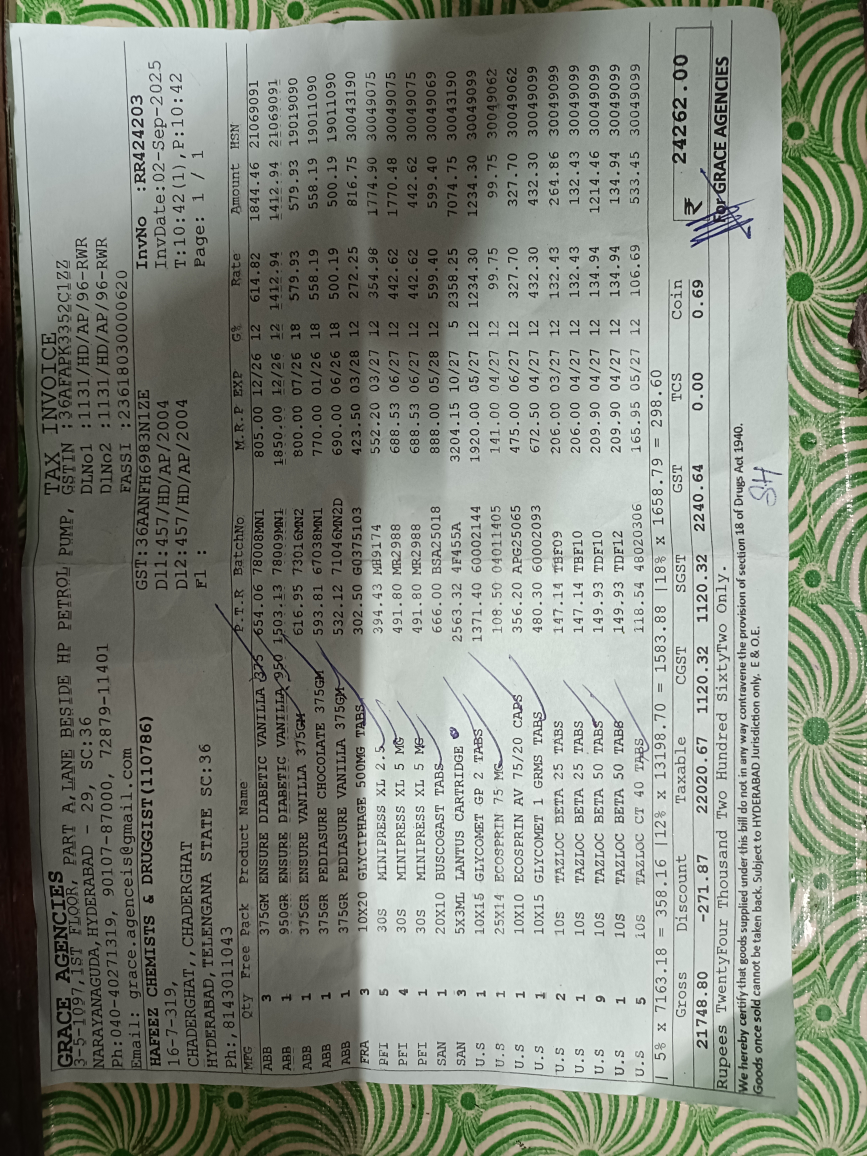 GRACE AGENCIES
3-5-1097,1ST FLOOR, PART A,LANE BESIDE HP PETROL PUMP,
NARAYANAGUDA,HYDERABAD - 29, SC:36
Ph:040-40271319, 90107-87000, 72879-11401
Email: grace.agenceis@gmail.com
TAX INVOICE
GSTIN :36AFAPK3352C1ZZ
DLNo1 :1131/HD/AP/96-RWR
DlNo2 :1131/HD/AP/96-RWR
FASSI :23618030000620
HAFEEZ CHEMISTS & DRUGGIST(110786)
16-7-319,
CHADERGHAT,,CHADERGHAT
HYDERABAD,TELENGANA STATE SC:36
Ph:,8143011043
GST:36AANFH6983N1ZE
Dl1:457/HD/AP/2004
Dl2:457/HD/AP/2004
Fl :
InvNo :RR424203
InvDate:02-Sep-2025
T:10:42(1),P:10:42
Page: 1 / 1
MFG Qty Free Pack Product Name P.T.R BatchNo M.R.P EXP G% Rate Amount HSN
ABB 3 375GM ENSURE DIABETIC VANILLA 375 654.06 78008MN1 805.00 12/26 12 614.82 1844.46 21069091
ABB 1 950GR ENSURE DIABETIC VANILLA 950 1503.13 78009MN1 1850.00 12/26 12 1412.94 1412.94 21069091
ABB 1 375GR ENSURE VANILLA 375GM 616.95 73016MN2 800.00 07/26 18 579.93 579.93 19019090
ABB 1 375GR PEDIASURE CHOCOLATE 375GM 593.81 67038MN1 770.00 01/26 18 558.19 558.19 19011090
ABB 1 375GR PEDIASURE VANILLA 375GM 532.12 71046MN2D 690.00 06/26 18 500.19 500.19 19011090
FRA 3 10X20 GLYCIPHAGE 500MG TABS 302.50 G0375103 423.50 03/28 12 272.25 816.75 30043190
PFI 5 30S MINIPRESS XL 2.5 394.43 MH9174 552.20 03/27 12 354.98 1774.90 30049075
PFI 4 30S MINIPRESS XL 5 MG 491.80 MR2988 688.53 06/27 12 442.62 1770.48 30049075
PFI 1 30S MINIPRESS XL 5 MG 491.80 MR2988 688.53 06/27 12 442.62 442.62 30049075
SAN 1 20X10 BUSCOGAST TABS 666.00 BSA25018 888.00 05/28 12 599.40 599.40 30049069
SAN 3 5X3ML LANTUS CARTRIDGE 2563.32 4F455A 3204.15 10/27 5 2358.25 7074.75 30043190
U.S 1 10X15 GLYCOMET GP 2 TABS 1371.40 60002144 1920.00 05/27 12 1234.30 1234.30 30049099
U.S 1 25X14 ECOSPRIN 75 MG 108.50 04011405 141.00 04/27 12 99.75 99.75 30049062
U.S 1 10X10 ECOSPRIN AV 75/20 CAPS 356.20 APG25065 475.00 06/27 12 327.70 327.70 30049062
U.S 1 10X15 GLYCOMET 1 GRMS TABS 480.30 60002093 672.50 04/27 12 432.30 432.30 30049099
U.S 2 10S TAZLOC BETA 25 TABS 147.14 TBF09 206.00 03/27 12 132.43 264.86 30049099
U.S 1 10S TAZLOC BETA 25 TABS 147.14 TBF10 206.00 04/27 12 132.43 132.43 30049099
U.S 9 10S TAZLOC BETA 50 TABS 149.93 TDF10 209.90 04/27 12 134.94 1214.46 30049099
U.S 1 10S TAZLOC BETA 50 TABS 149.93 TDF12 209.90 04/27 12 134.94 134.94 30049099
U.S 5 10S TAZLOC CT 40 TABS 118.54 48020306 165.95 05/27 12 106.69 533.45 30049099
| 5% x 7163.18 = 358.16 |12% x 13198.70 = 1583.88 |18% x 1658.79 = 298.60
Gross Discount Taxable CGST SGST GST TCS Coin
21748.80 -271.87 22020.67 1120.32 1120.32 2240.64 0.00 0.69
₹ 24262.00
Rupees TwentyFour Thousand Two Hundred SixtyTwo Only.
For GRACE AGENCIES
We hereby certify that goods supplied under this bill do not in any way contravene the provision of section 18 of Drugs Act 1940.
Goods once sold cannot be taken back. Subject to HYDERABAD Jurisdiction only. E & O.E.
SH